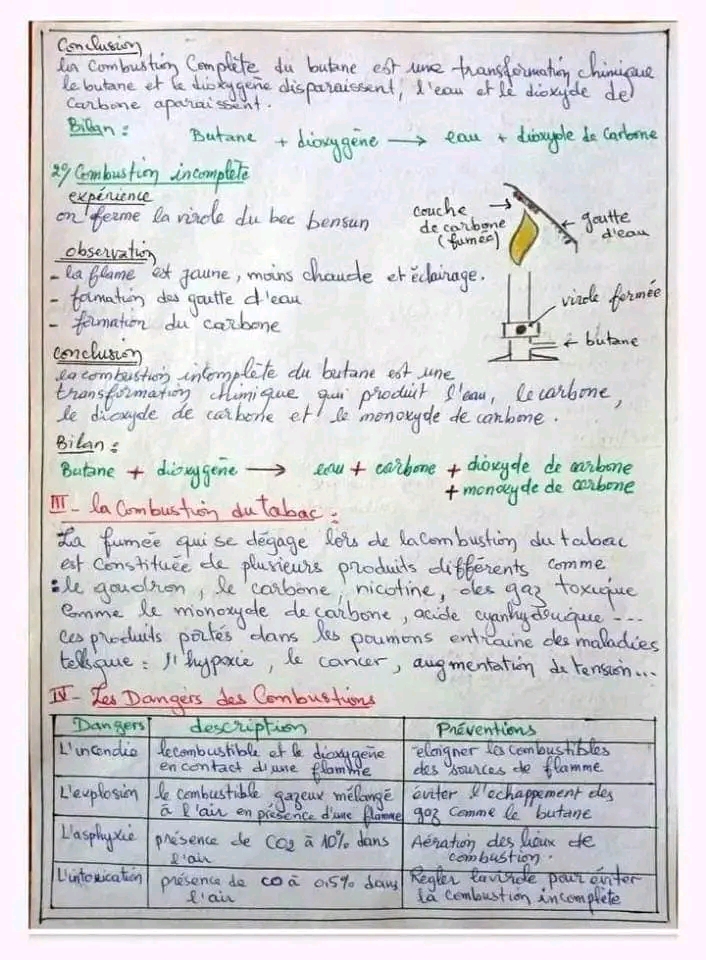 Conclusion
la combustion Complète du butane est une transformation chimique
le butane et le dioxygène disparaissent, l'eau et le dioxyde de
Carbone aparaissent.
Bilan :
Butane + dioxygène → eau + dioxyde de Carbone
2°/ Combustion incomplète
expérience
on ferme la virole du bec bensun
couche de carbone (fumée)
goutte d'eau
observation
- la flame est jaune, moins chaude et éclairage.
- formation des goutte d'eau
- formation du carbone
virole fermée
butane
conclusion
la combustion intomplète du butane est une
transformation chimique qui produit l'eau, le carbone,
le dioxyde de carbone et le monoxyde de carbone.
Bilan :
Butane + dioxygène → eau + carbone + dioxyde de carbone
+ monoxyde de carbone
III - la Combustion du tabac :
La fumée qui se dégage lors de la combustion du tabac
est constituée de plusieurs produits différents comme
: le goudron, le carbone, nicotine, des gaz toxique
Comme le monoxyde de carbone, acide cyanhydrique ---
Ces produits portés dans les poumons entraine des maladies
tellsque : l'hypoxie, le cancer, augmentation de tension...
IV - Les Dangers des Combustions
Dangers description Préventions
L'incendie le combustible et le dioxygène en contact d'une flamme eloigner les combustibles des sources de flamme
L'explosion le combustible gazeux mélangé à l'air en présence d'une flamme éviter l'echappement des gaz comme le butane
L'asphyxie présence de CO2 à 10% dans l'air Aération des lieux de combustion.
L'intoxication présence de CO à 0,5% dans l'air Régler la virole pour éviter la combustion incomplète